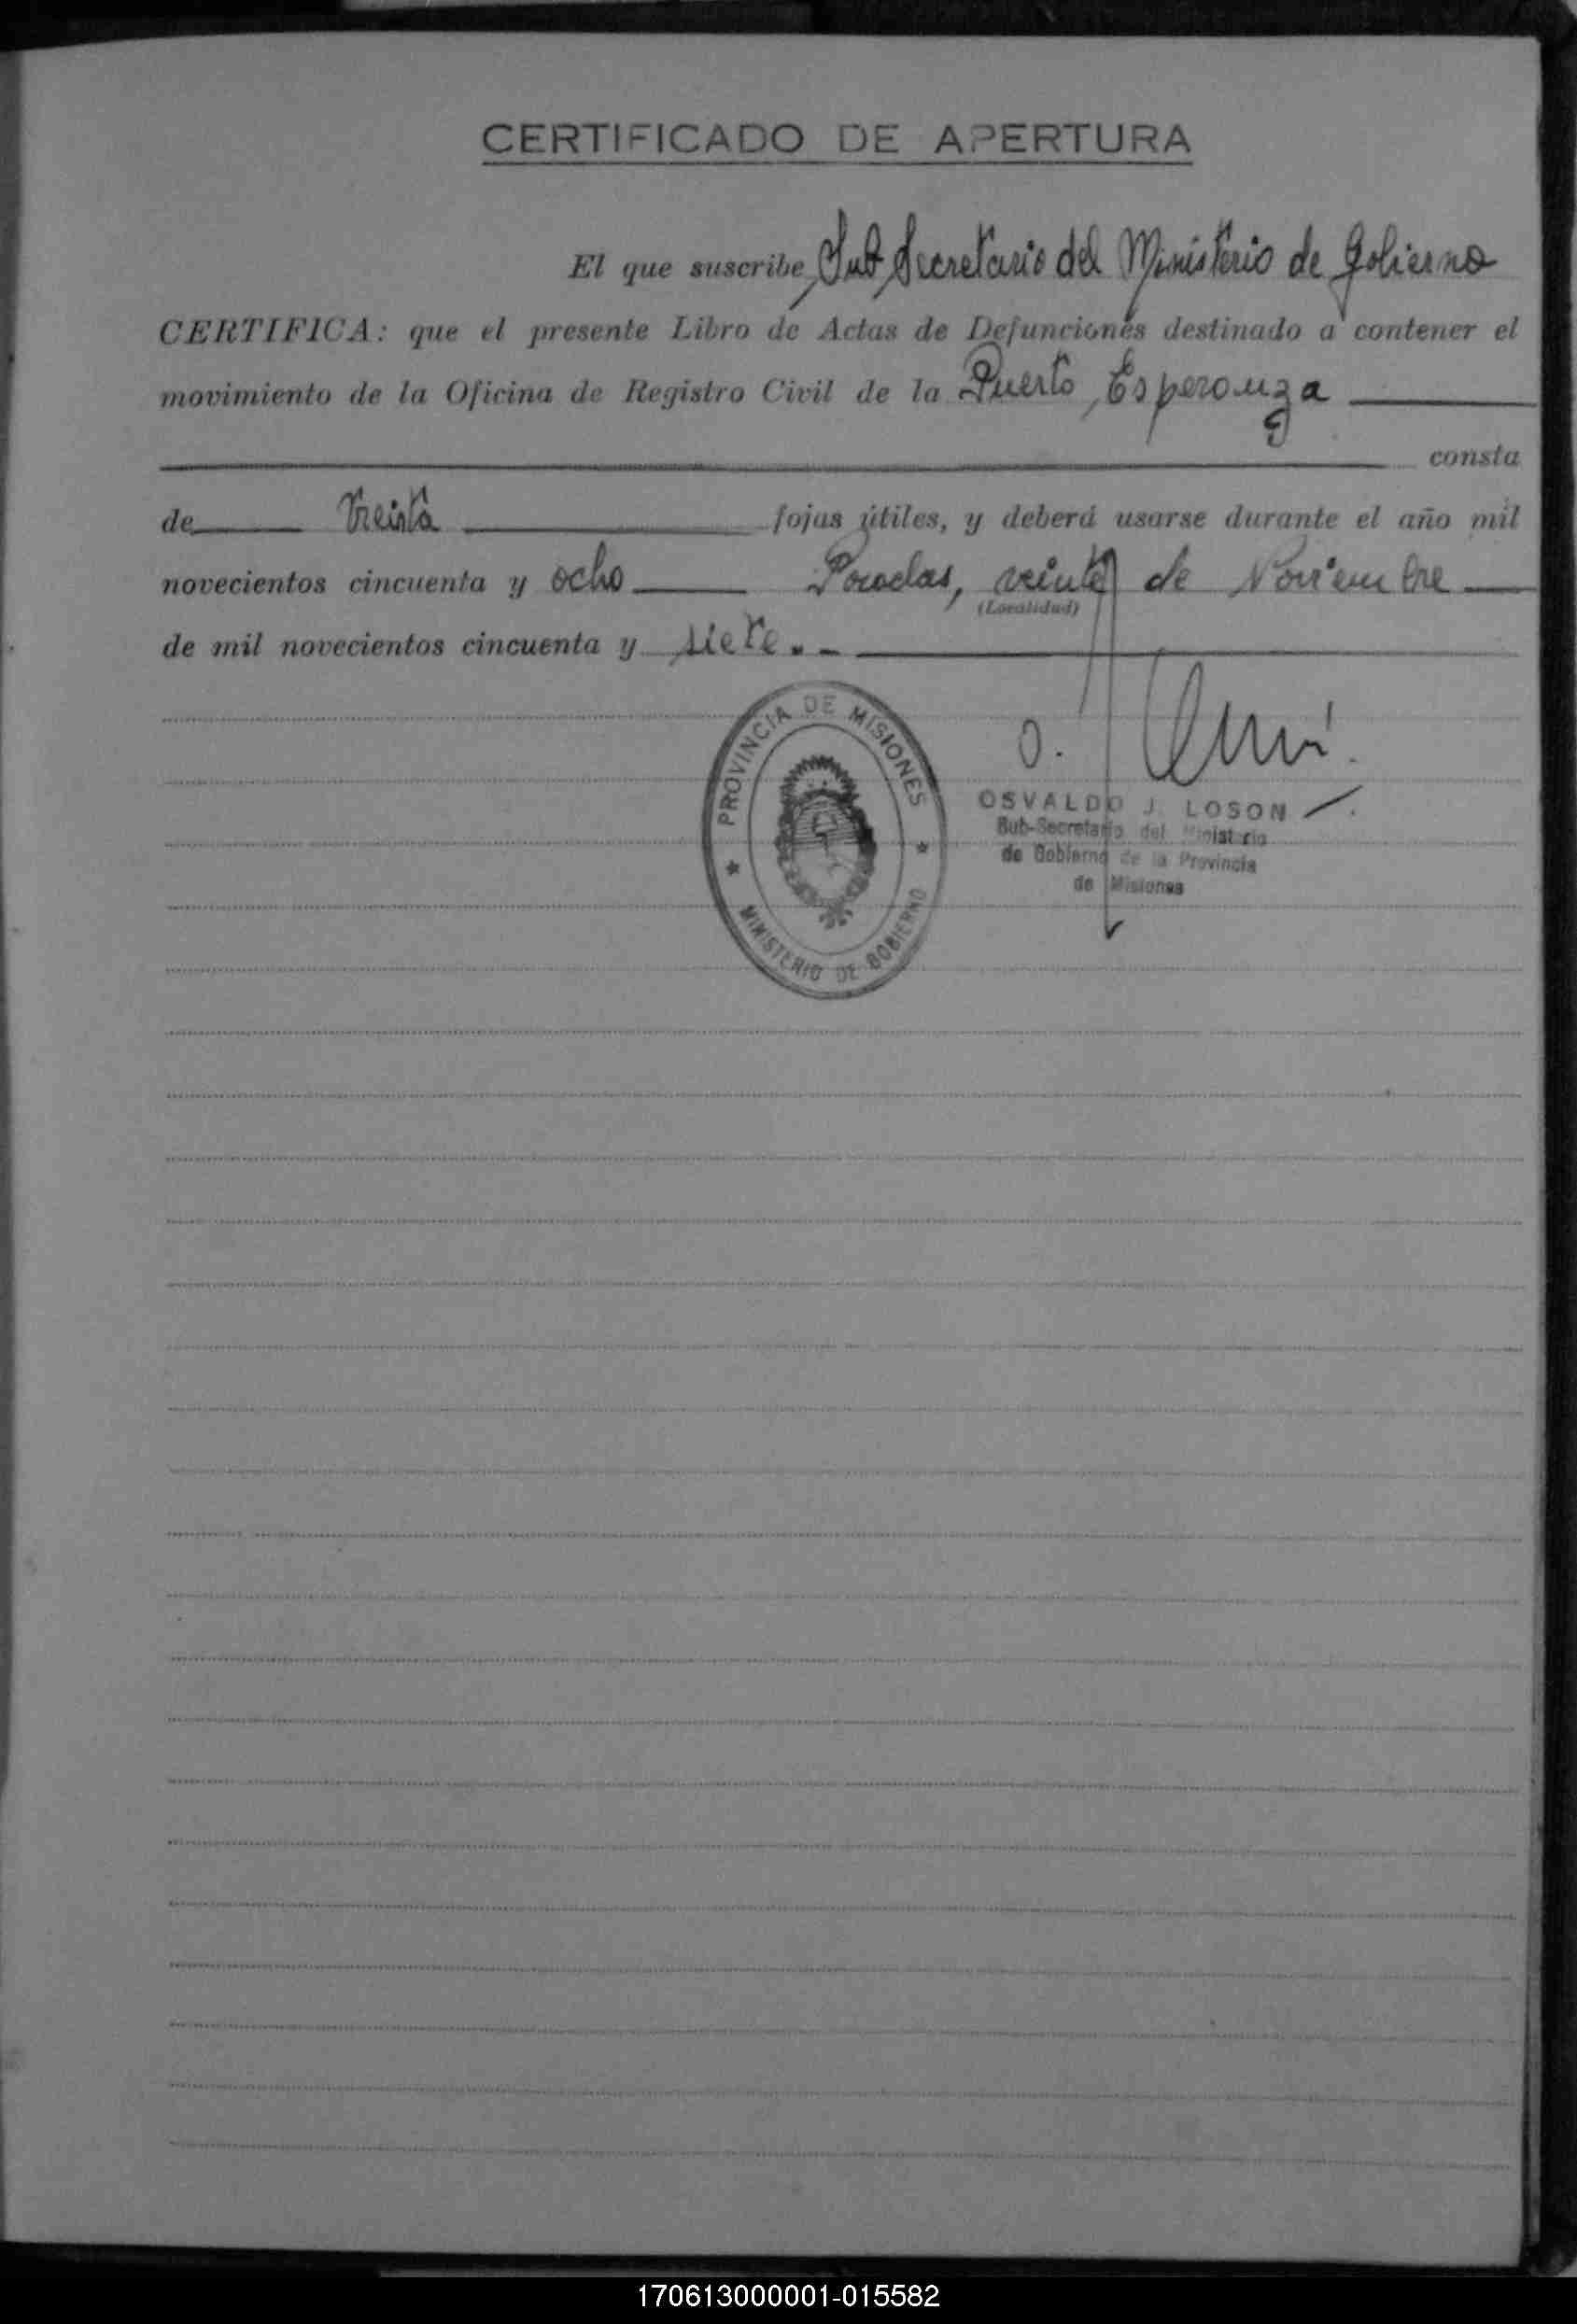 CERTIFICADO DE APERTURA
El que suscribe, Sub Secretario del Ministerio de Gobierno
CERTIFICA: que el presente Libro de Actas de Defunciones destinado a contener el
movimiento de la Oficina de Registro Civil de la Puerto Esperanza
consta
de Treinta fojas útiles, y deberá usarse durante el año mil
novecientos cincuenta y ocho Posadas, veinte de Noviembre
(Localidad)
de mil novecientos cincuenta y siete.-
PROVINCIA DE MISIONES
MINISTERIO DE GOBIERNO
OSVALDO J. LOSON
Sub-Secretario del Ministerio
de Gobierno de la Provincia
de Misiones
170613000001-015582